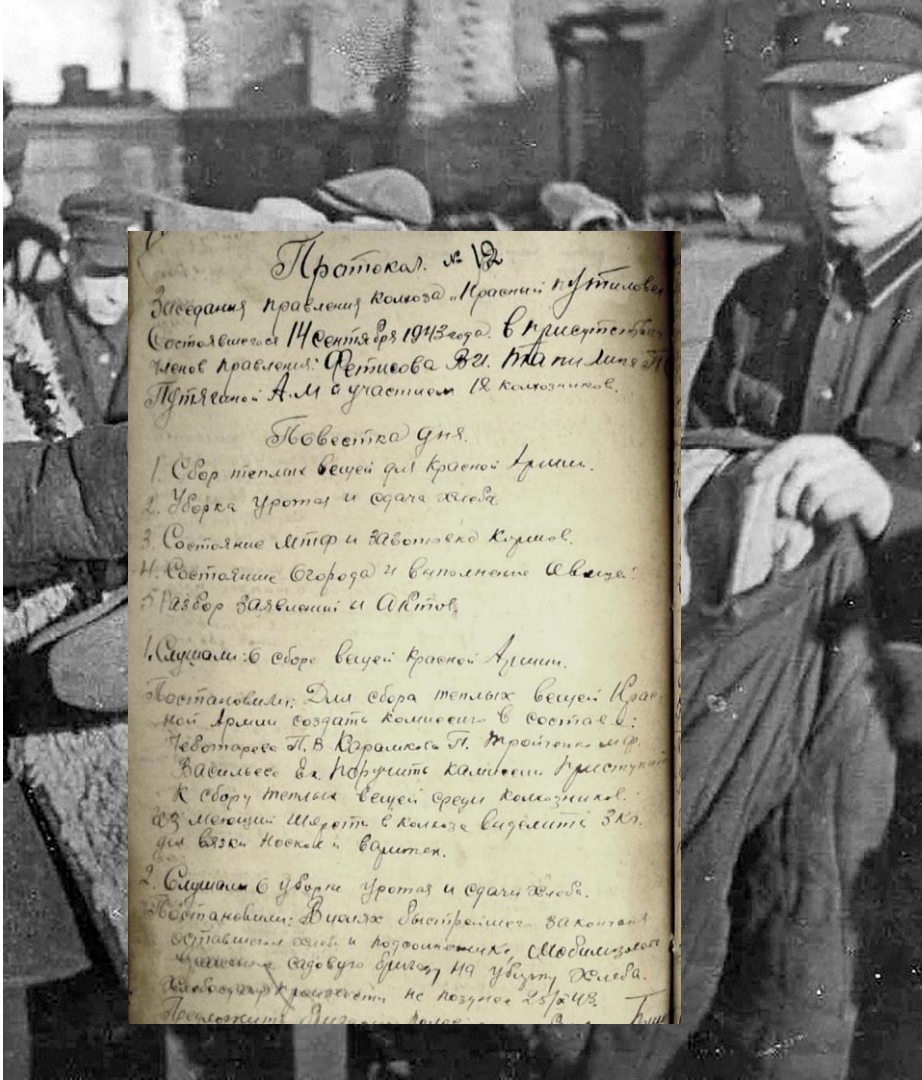 Протокол. № 12
Заседания правления колхоза „Красный путиловец
Состоявшегося 14 сентября 1943 года. в присутствии
членов правления: Фетисова В.И.
Путягиной А.М с участием 12 колхозников.
Повестка дня.
1. Сбор теплых вещей для Красной Армии.
2. Уборка урожая и сдача хлеба
3. Состояние МТФ и заготовка кормов.
4. Состояние огорода и выполнение
5. Разбор заявлений и Актов.
1. Слушали: О сборе вещей Красной Армии.
Постановили: Для сбора теплых вещей Крас-
ной Армии создать комиссию в составе:
Чеботарева П.В П. Тройченко М.Ф.
Васильева Ек. Поручить камиссии приступить
к сбору теплых вещей среди колхозников.
шерсти в колхозе выделить 3 кг.
для вязки носков и варежек.
2. Слушали О уборке урожая и сдачи хлеба.
Постановили: Вцелях быстрейшего
и подсолнечника,
садовую бригаду на уборку хлеба.
не позднее 25/
Предложить